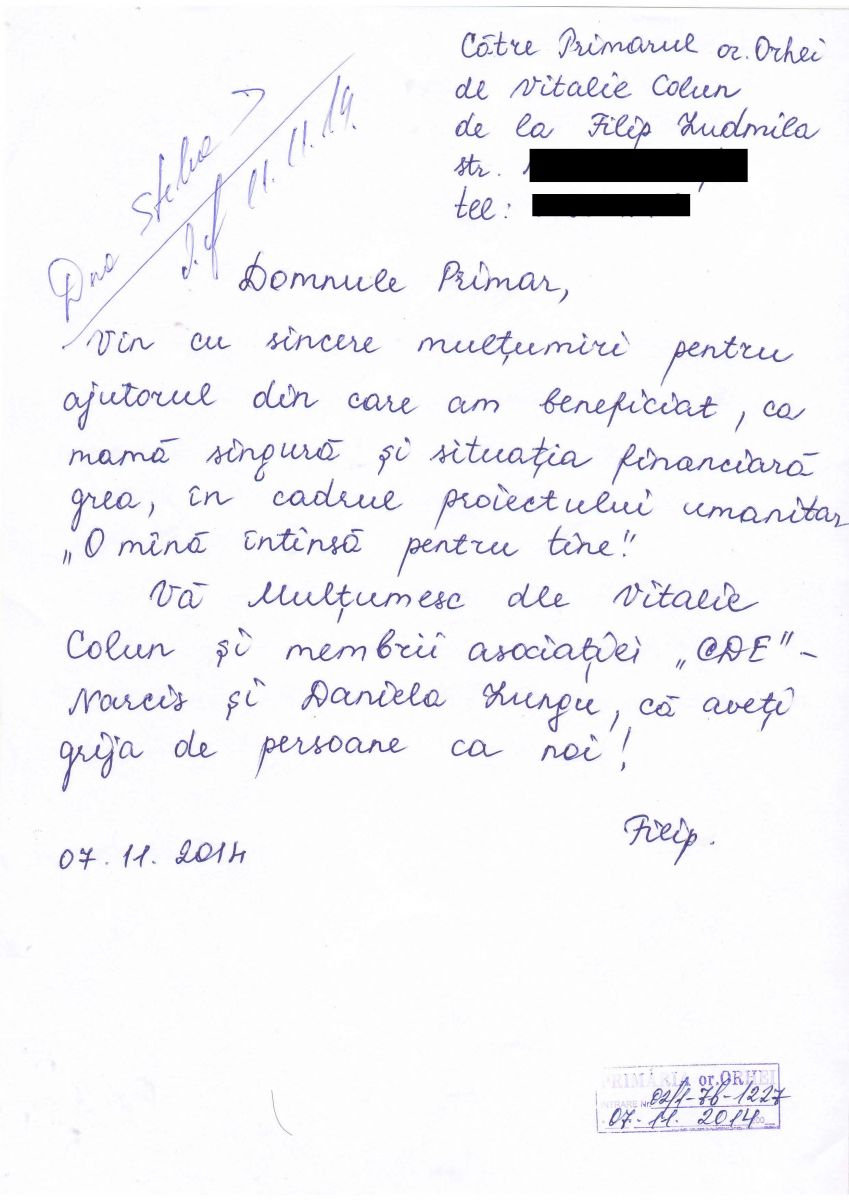 Către Primarul or. Orhei
de Vitalie Colun
de la Filip Ludmila
str.
tel:
Dna Stelea
11.11.14.
Domnule Primar,
Vin cu sincere mulțumiri pentru
ajutorul din care am beneficiat, ca
mamă singură și situația financiară
grea, în cadrul proiectului umanitar
„O mînă întinsă pentru tine!"
Vă Mulțumesc dle Vitalie
Colun și membrii asociației „CDE" -
Narcis și Daniela Lungu, că aveți
grija de persoane ca noi!
Filip.
07.11.2014
PRIMĂRIA or. ORHEI
INTRARE Nr. 02/1-76-1227
07.11.2014